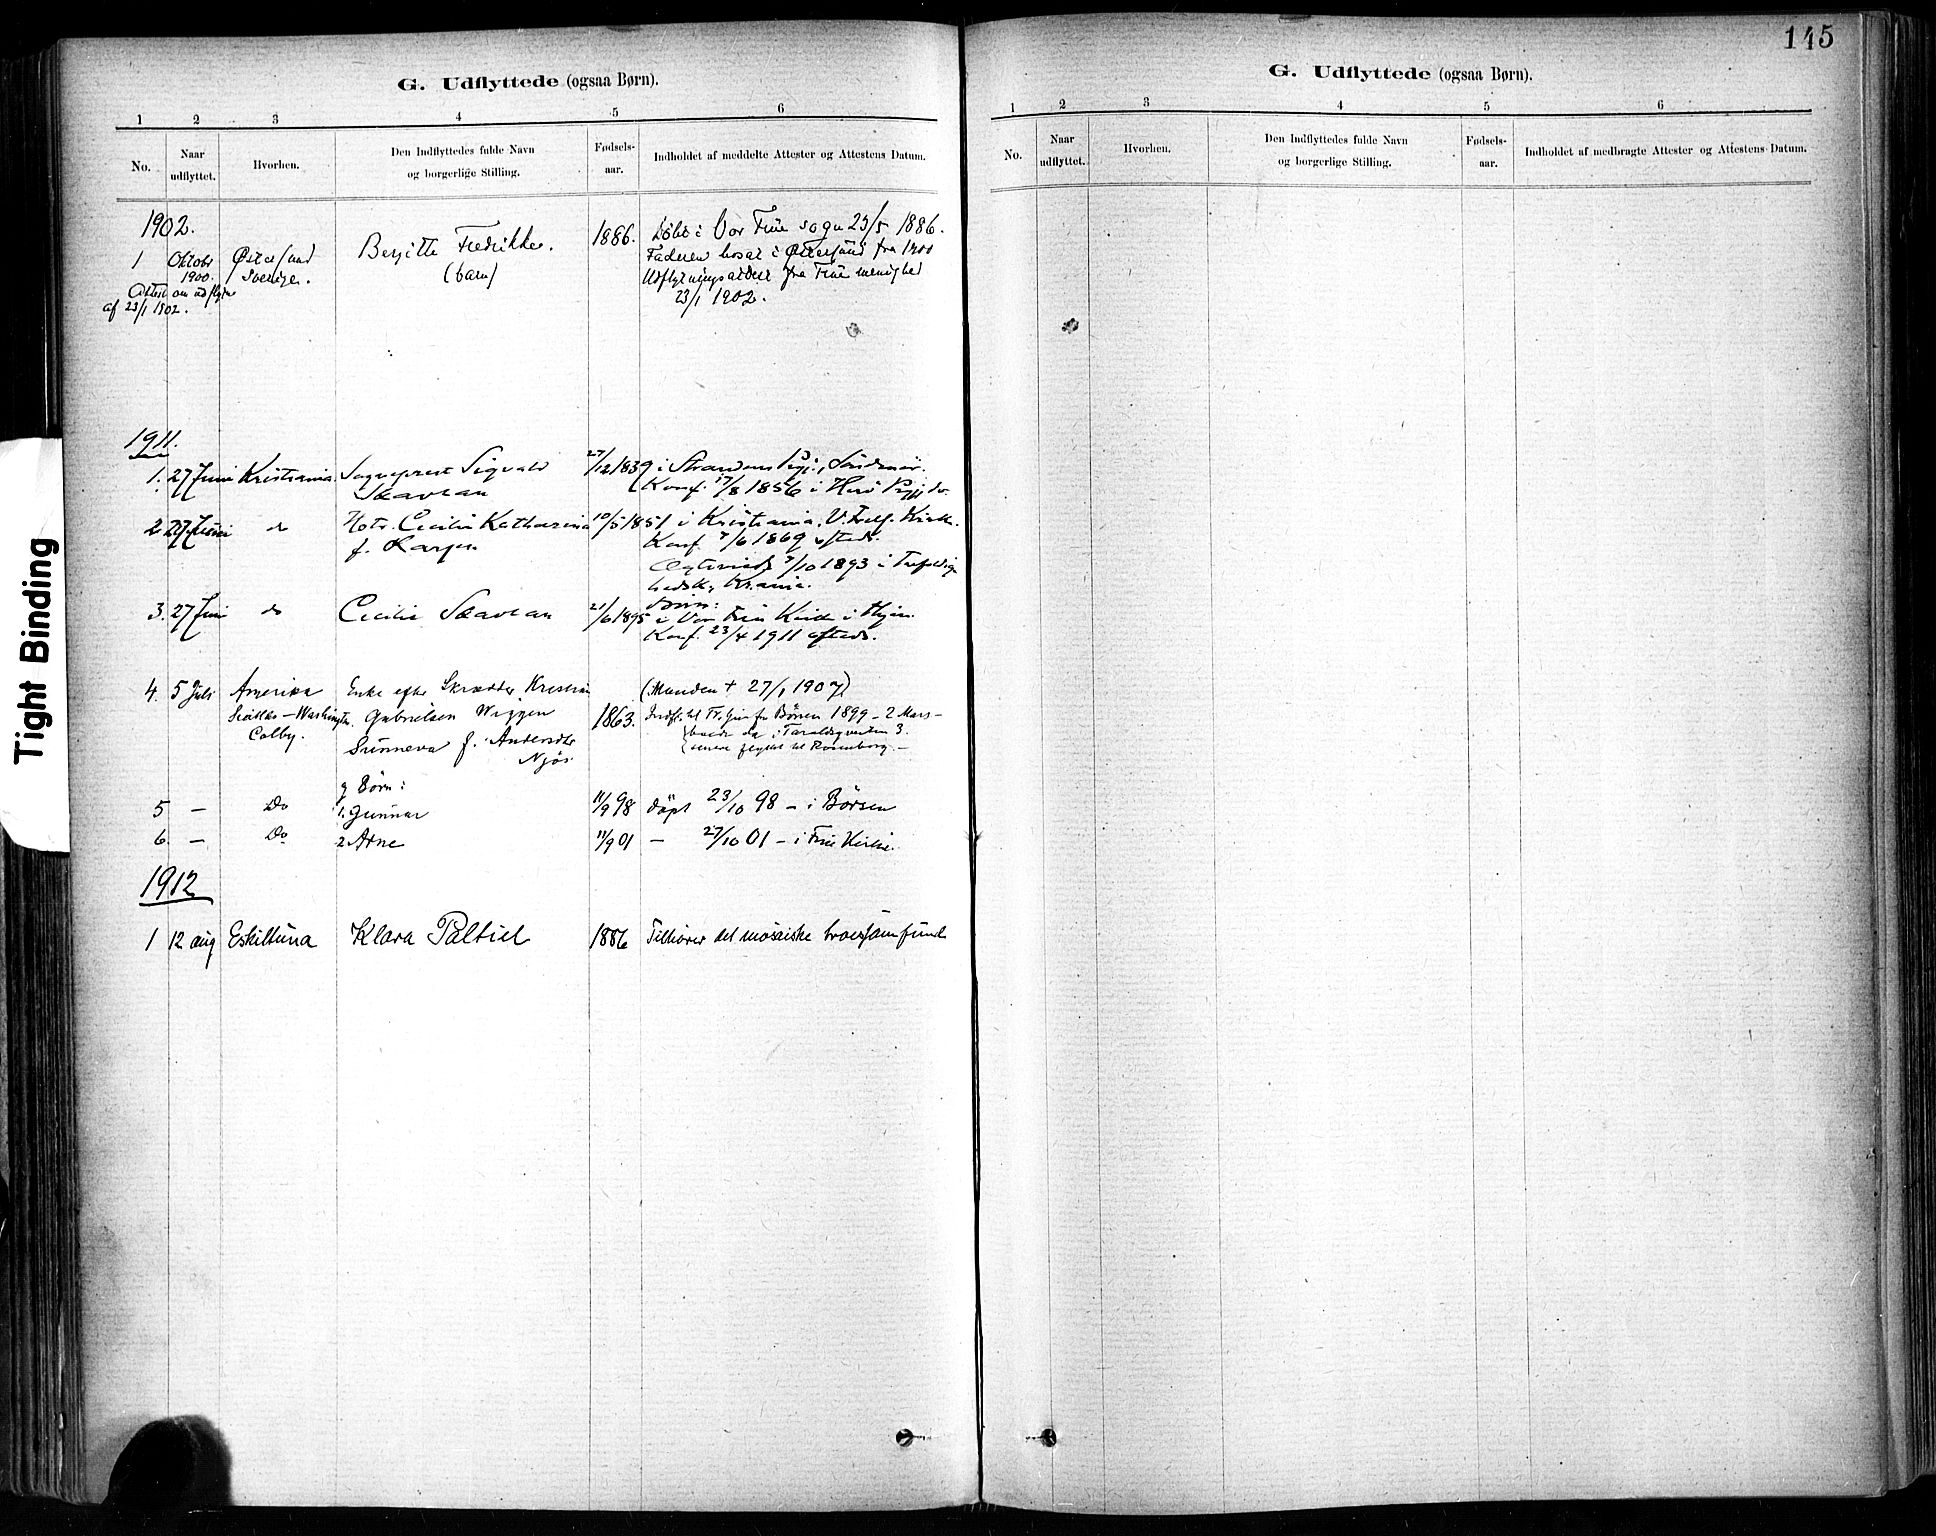 145
G. Udflyttede (ogsaa Børn).
1 2 3 4 5 6
No. Naar udflyttet. Hvorhen. Den Indflyttedes fulde Navn og borgerlige Stilling. Fødselsaar. Indholdet af meddelte Attester og Attestens Datum.
1902.
1 Oktobr 1900. Østersund Sverige. Bergitte Fredrikke. (barn) 1886. Döbt i Vor Frue sogn 23/5 1886.
Faderen bosat i Østersund fra 1900
Udflytningsattest fra Frue menighed
23/1 1902.
Attest om udflytn
af 23/1 1902.
1911.
1. 27 Juni Kristiania. Sogneprest Sigvald Skavlan 27/12 1839 i Strandens Pgj., Söndmör.
Konf. 17/8 1856 i Herö Pgj.
2 27 Juni do Hstr. Cecilie Katharina f. Larsen 10/5 1851 i Kristiania, V. Frels. Kirke.
Konf. 7/6 1869 ofsteds.
Ægteviede 3/10 1893 i Trefoldig
hedsk., Krania.
3. 27 Juni do Cecilie Skavlan 21/6 1895 i Vor Frue Kirke i Thjem.
Konf. 23/4 1911 ofsteds.
4. 5 Juli Amerika Enke efter Skrædder Kristian (Manden † 27/1 1907)
Seattle – Washington Colby. Gabrielsen Wiggen 1863. Indfl. til Tr.hjem fra Börsen 1899 – 2 Mars –
Sunneva f. Andersdtr Njös
g Börn:
5 – Do 1. Gunnar 11/9 98 döpt 23/10 98 – i Börsen
6. – Do 2 Arne 11/9 01 – 27/10 01 – i Frue Kirke.
1912
1 12 aug Eskiltuna Klara Paltiel 1886 Tilhører det mosaiske troessamfund
G. Udflyttede (ogsaa Børn).
1 2 3 4 5 6
No. Naar udflyttet. Hvorhen. Den Indflyttedes fulde Navn og borgerlige Stilling. Fødselsaar. Indholdet af medbragte Attester og Attestens Datum.
Tight Binding